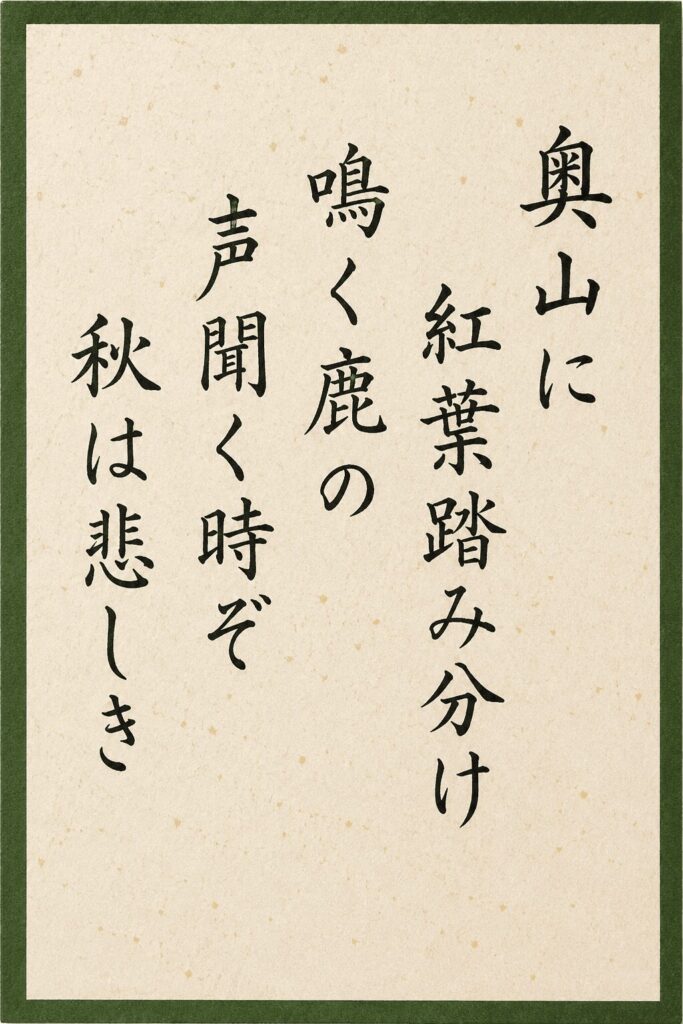 奥山に
紅葉踏み分け
鳴く鹿の
声聞く時ぞ
秋は悲しき